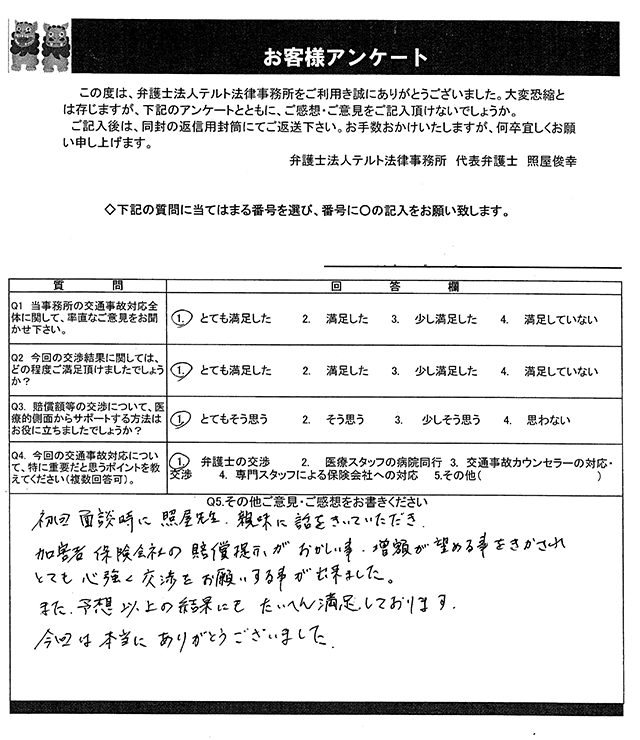 お客様アンケート
この度は、弁護士法人テルト法律事務所をご利用き誠にありがとうございました。大変恐縮と
は存じますが、下記のアンケートとともに、ご感想・ご意見をご記入頂けないでしょうか。
ご記入後は、同封の返信用封筒にてご返送下さい。お手数おかけいたしますが、何卒宜しくお願
い申し上げます。
弁護士法人テルト法律事務所 代表弁護士 照屋俊幸
◇下記の質問に当てはまる番号を選び、番号に〇の記入をお願い致します。
質 問 回 答 欄
Q1 当事務所の交通事故対応全
体に関して、率直なご意見をお聞
かせ下さい。
1. とても満足した 2. 満足した 3. 少し満足した 4. 満足していない
Q2 今回の交渉結果に関しては、
どの程度ご満足頂けましたでしょう
か?
1. とても満足した 2. 満足した 3. 少し満足した 4. 満足していない
Q3. 賠償額等の交渉について、医
療的側面からサポートする方法は
お役に立ちましたでしょうか?
1. とてもそう思う 2. そう思う 3. 少しそう思う 4. 思わない
Q4. 今回の交通事故対応につい
て、特に重要だと思うポイントを教
えてください(複数回答可)。
1. 弁護士の交渉 2. 医療スタッフの病院同行 3. 交通事故カウンセラーの対応・
交渉 4. 専門スタッフによる保険会社への対応 5.その他( )
Q5.その他ご意見・ご感想をお書きください
初回面談時に照屋先生、親味に話をきいていただき、
加害者保険会社の賠償提示がおかしい事・増額が望める事をきかされ
とても心強く交渉をお願いする事が出来ました。
また、予想以上の結果にもたいへん満足しております。
今回は本当にありがとうございました。